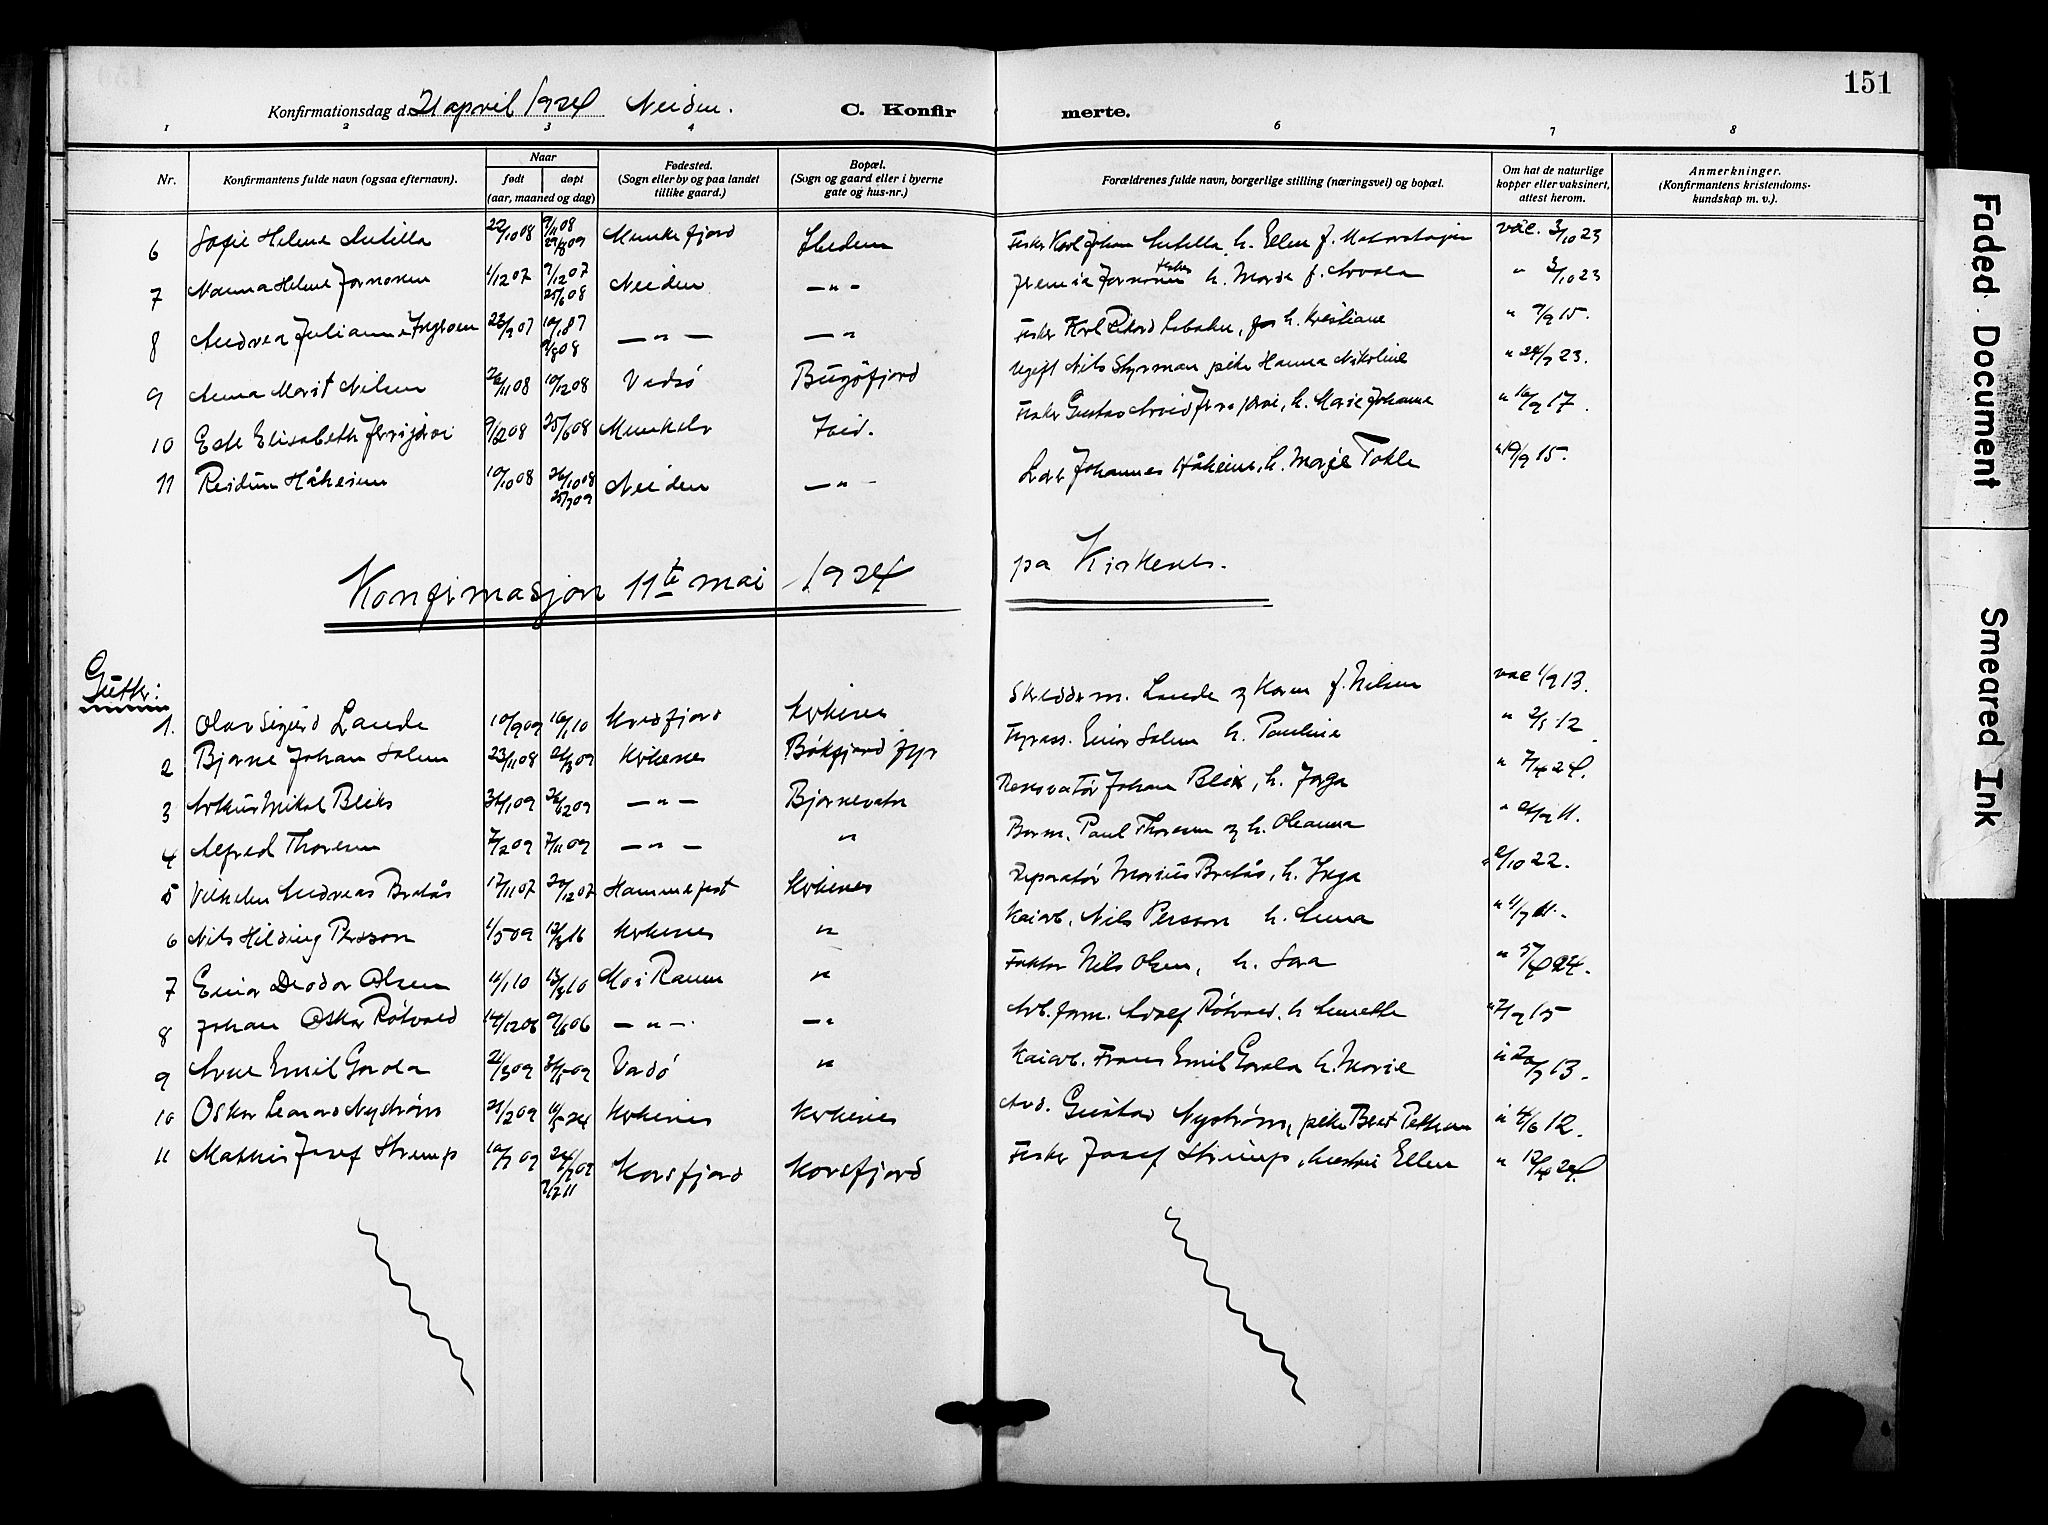 151
Konfirmationsdag d. 21 april 1924 Neiden. C. Konfir merte.
1 2 3 4 6 7 8
Nr. Konfirmantens fulde navn (ogsaa efternavn). Naar født døpt (aar, maaned og dag) Fødested. (Sogn eller by og paa landet tillike gaard.) Bopæl. (Sogn og gaard eller i byerne gate og hus-nr.) Forældrenes fulde navn, borgerlige stilling (næringsvei) og bopæl. Om hat de naturlige kopper eller vaksinert, attest herom. Anmerkninger. (Konfirmantens kristendomskundskap m. v.).
6 Sofie Helene 22/10 08 9/11 08 29/8 09 Munkefjord Fisker Karl Johan h. Ellen f. vac. 3/10 23
7 Nanna Helene 1/12 07 9/12 07 25/6 08 Neiden — " — fisker h. Marie f. Arvola " 3/10 23
8 Andrea Julianne 23/9 07 9/8 08 — " — — " — Fisker Karl h. Kristiane " 7/9 15.
9 Anna Marit Nilsen 26/11 08 10/12 08 Vadsö Bugöfjord Ugift Nils Styrman pike Hanna Nikoline " 24/9 23.
10 Elisabeth 9/2 08 25/6 08 Munkelv Ibid. Fisker Gustav Arvid h. Marie Johanna " 16/9 17.
11 Reidun Håheim 10/10 08 26/10 08 25/7 09 Neiden — " — Johannes Håheim, h. Marie Tokle " 19/9 15.
Konfirmasjon 11te mai 1924 på Kirkenes.
Gutter:
1. Olav Sigurd Lande 10/9 09 16/1 10 Kirkenes Skredderm. Lande og Karen f. Nilsen vac 1/9 13.
2 Bjarne Johan Salen 23/11 08 21/3 09 Kirkenes Bökfjord fyr Fyrass. Einar Salen h. Pauline " 2/5 12.
3 Mikal Bliks 31/1 09 26/12 09 — " — Bjørnevatn Renovatør Johan Blix, h. " 7/4 24.
4 Alfred Thoresen 7/2 09 7/11 09 — " — " Borm. Paul Thoresen og h. Oleanna
5 Vilhelm Andreas Bratås 17/11 07 26/12 07 Hammerfest Kirkenes Reparatør Marius Bratås, h. Inga " 2/10 22.
6 Nils Hilding Persson 1/5 09 Kirkenes " Kaiarb. Nils Persson h. Anna
7 Einar Olsen 11/1 10 13/3 10 Mo i Ranen " Faktor Nils Olsen, h. Sara " 5/4 24.
8 Johan Oskar Rötvold 14/12 06 9/6 06 — " — — " Arb. form. Adolf Rötvold, h. Annette " 7/9 15
9 Arne Emil Gorola 21/3 09 31/5 09 Vadsö " Kaiarb. Frans Emil Gorola h. Marie " 20/9 13.
10 Oskar Leonard Nyström 21/2 09 Kirkenes Kirkenes Arb. Gustav Nyström, pike Berit " 4/6 12.
11 Mathis Josef Strimp 10/7 09 Korsfjord Korsfjord Fisker Josef Strimp, hustru Ellen " 12/4 24.
Faded Document
Smeared Ink